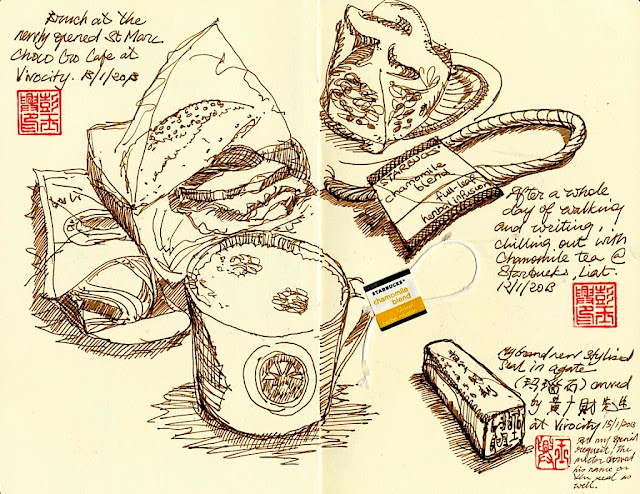 Brunch at the
newly opened St Marc
Choco Cro Cafe at
Vivocity. 15/1/2013
STARBUCKS
chamomile
blend
full-leaf
herbal infusion
After a whole
day of walking
and writing,
chilling out with
Chamomile tea @
Starbucks, Liat.
12/1/2013
STARBUCKS
chamomile
blend
My brand new stylised
seal in agate
(玛瑙石) carved
by 黄十財先生
at Vivocity 15/1/2013
at my special
request, the
carved
his name on
the seal as
well.